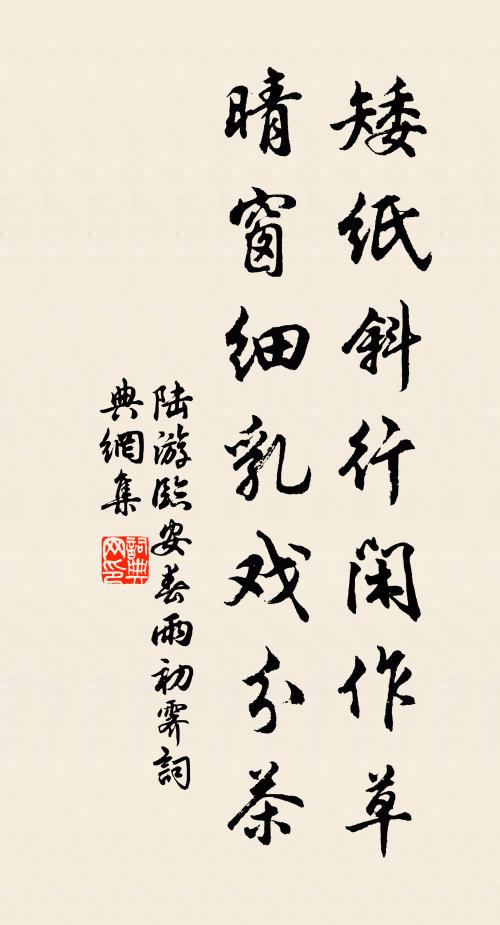 矮纸斜行闲作草
晴窗细乳戏分茶
陆游临安春雨初霁詞
典網集
詞典网印